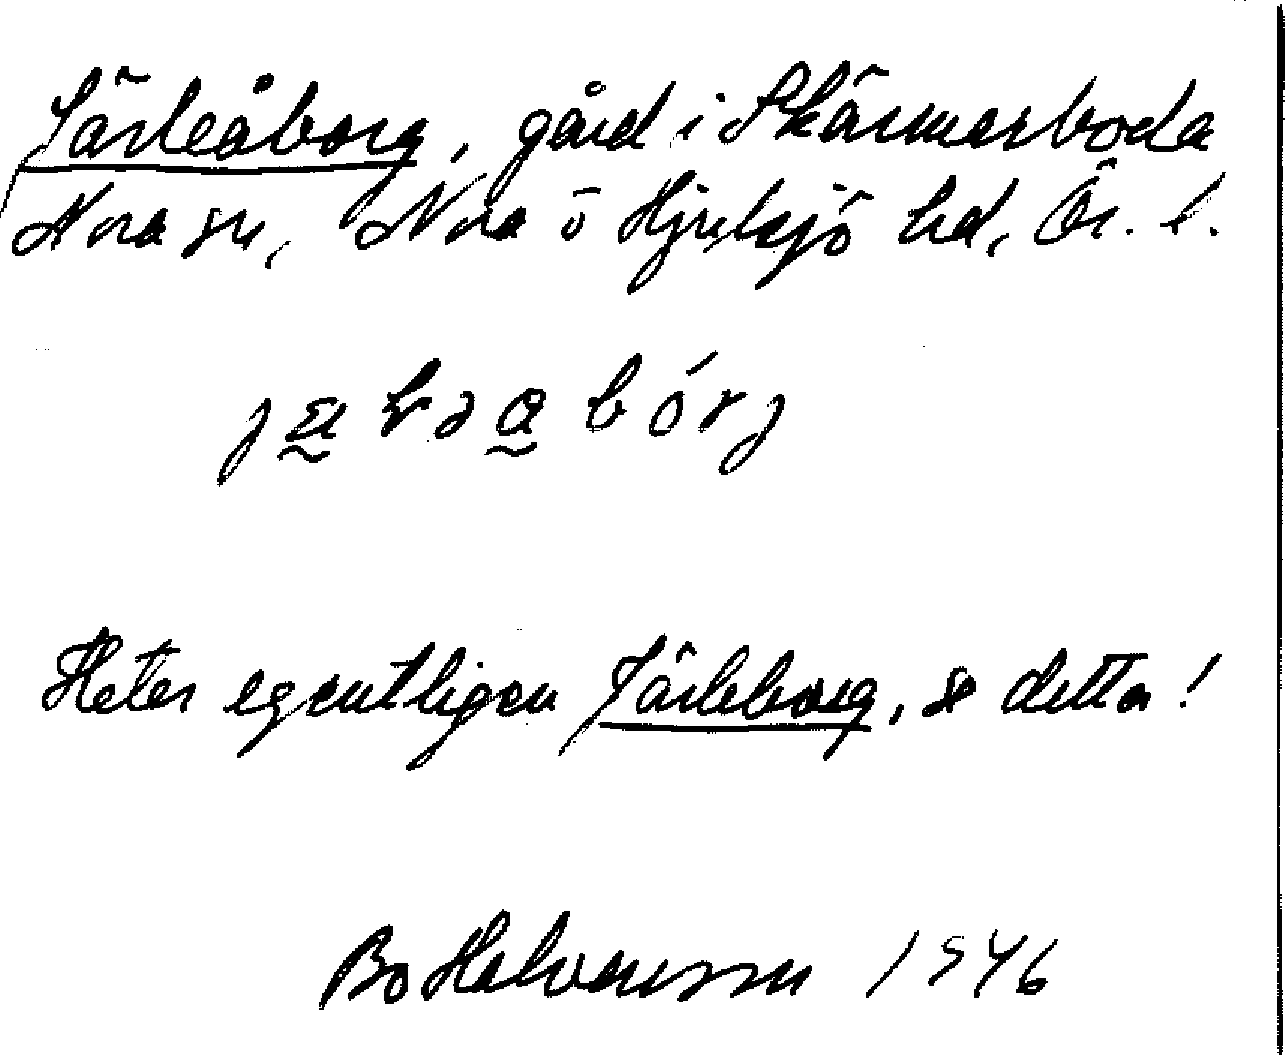 Järleåborg, gård i Skärmerboda
Nora sn, Nora o Hjulsjö hd, Ör. l.
Heter egentligen Järleborg, se detta!
Bo Halvarsson 1946